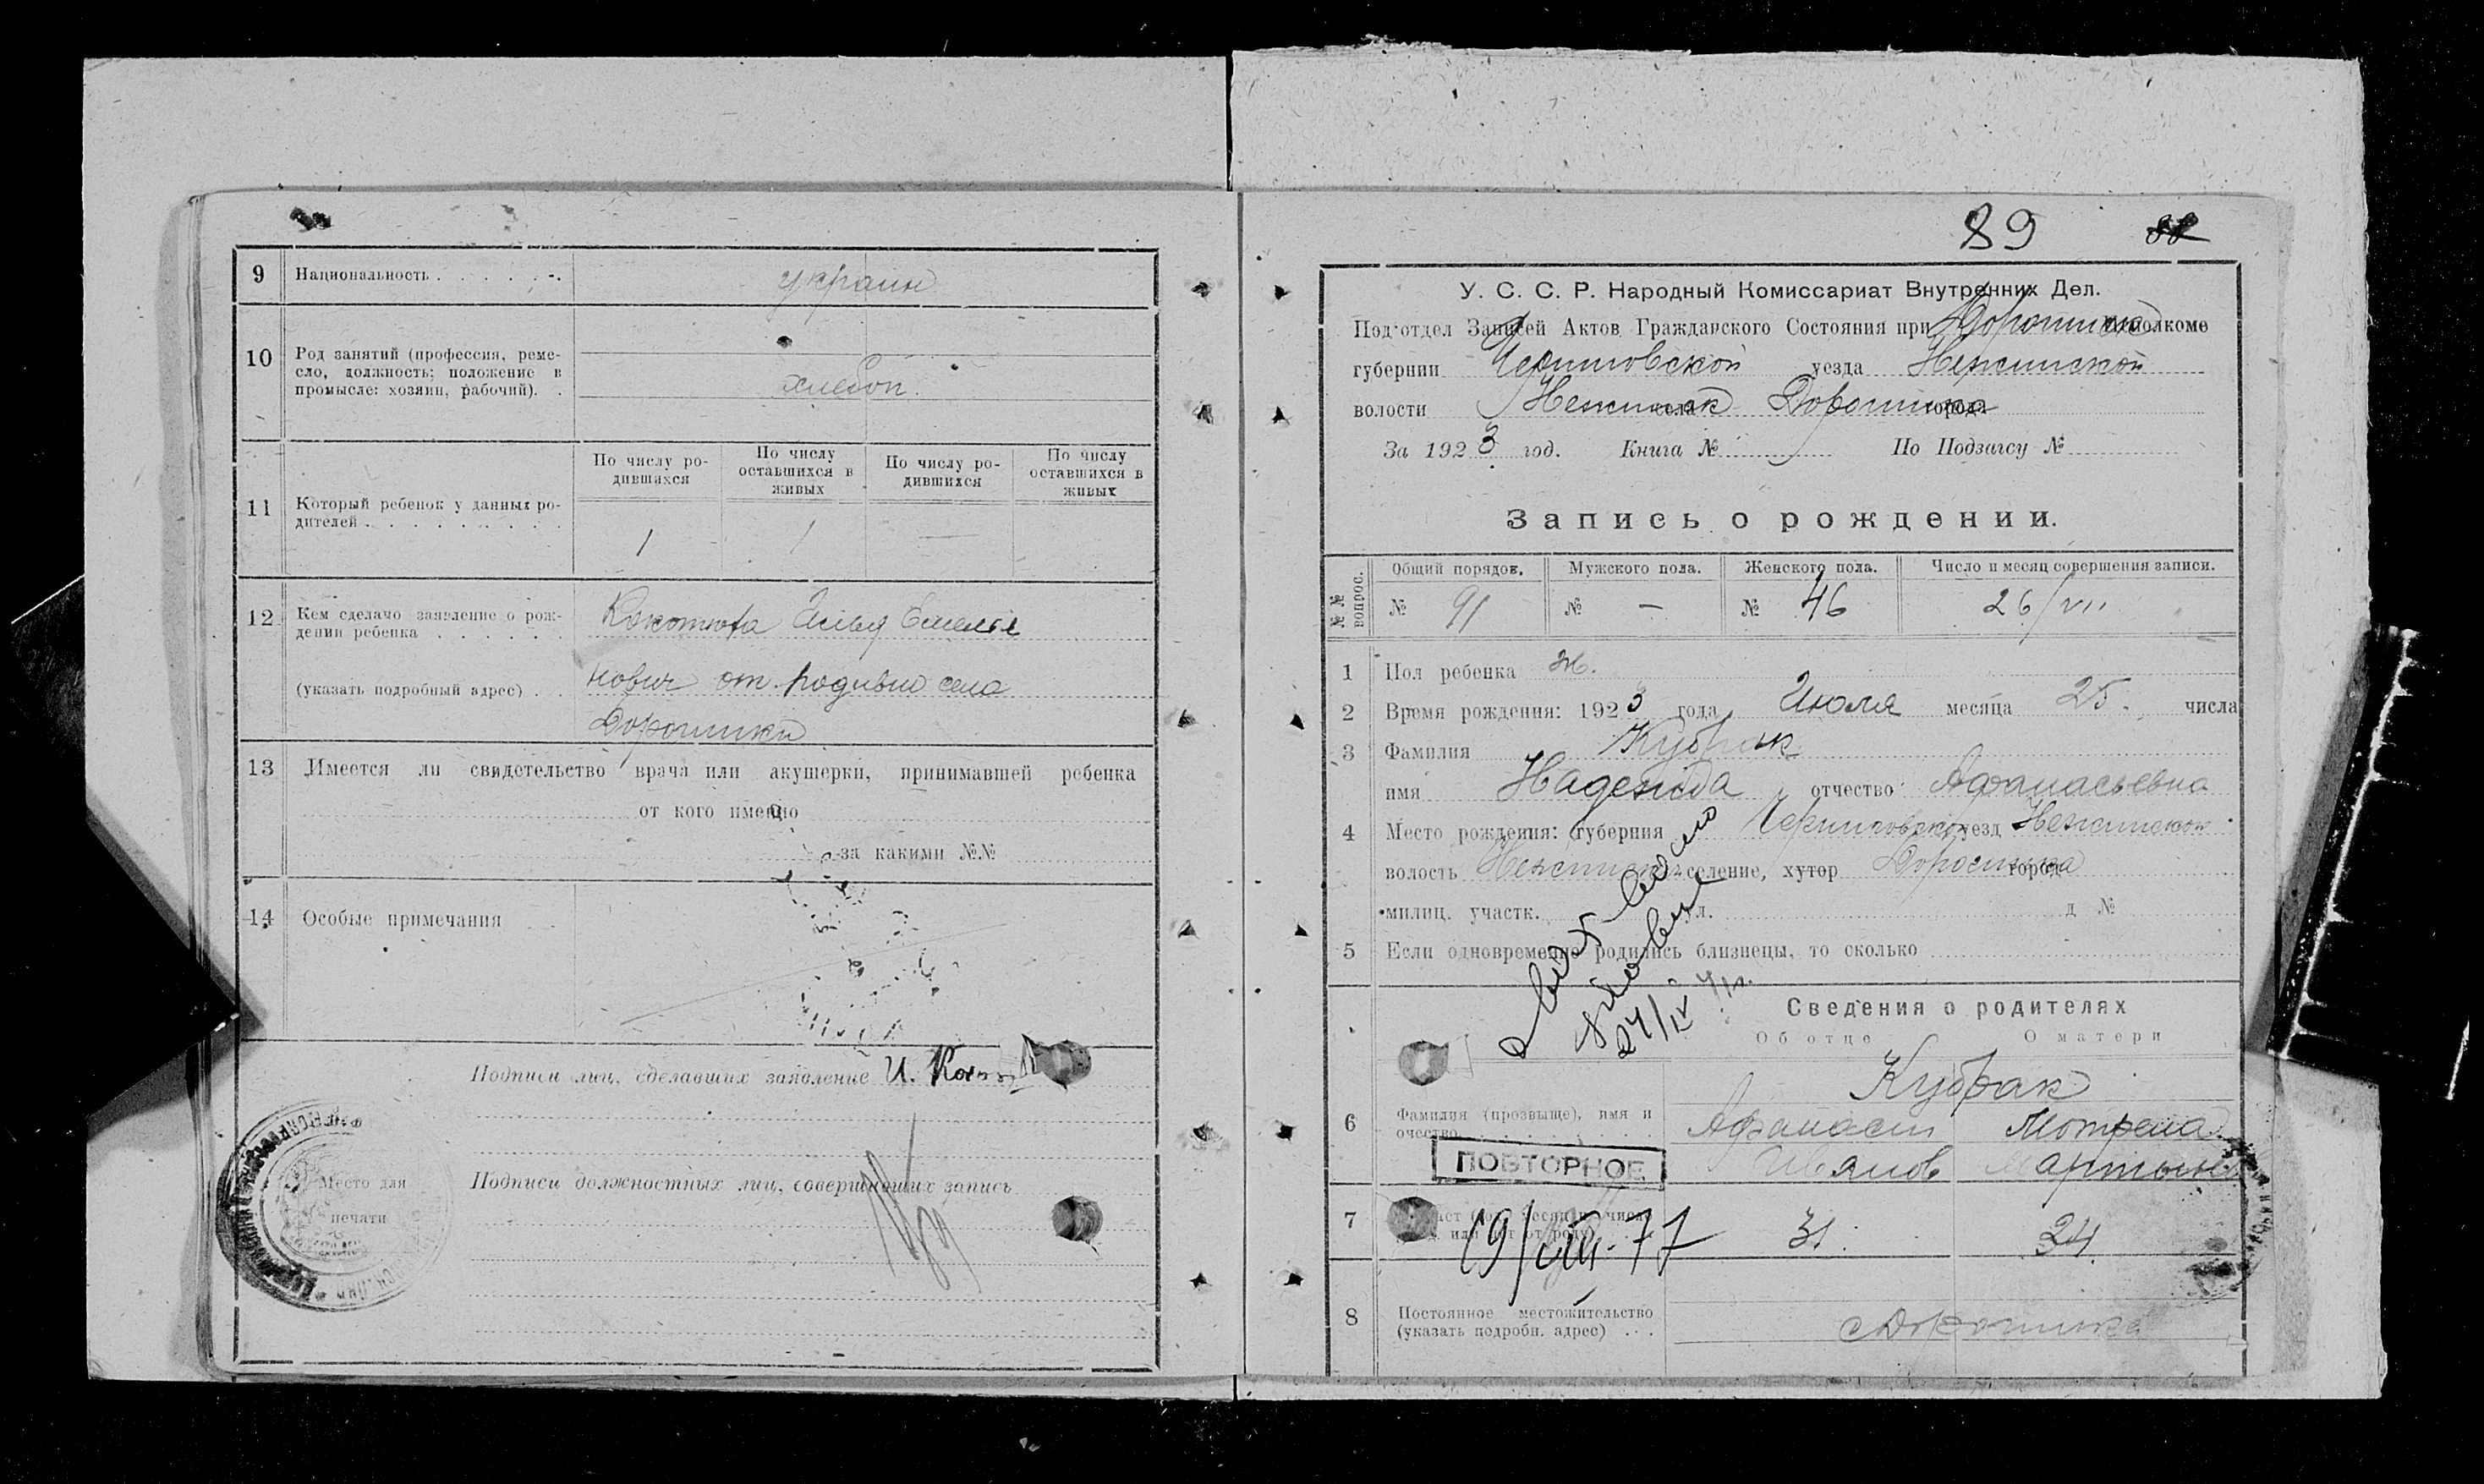 9 Национальность украин
10 Род занятий (профессия, реме-
сло, должность; положение в
промысле: хозяин, рабочий). хлебоп.
По числу ро-
дившихся
По числу
оставшихся в
живых
По числу ро-
дившихся
По числу
оставшихся в
живых
11 Который ребенок у данных ро-
дителей 1 1 —
12 Кем сделано заявление о рож-
дении ребенка Илья Емелья
(указать подробный адрес) нович от родивш села
Дорошики
13 Имеется ли свидетельство врача или акушерки, принимавшей ребенка
от кого именно
за какими №№
14 Особые примечания
Подписи лиц, сделавших заявление И.
Подписи должностных лиц, совершивших запись
Место для
печати
89 88
У. С. С. Р. Народный Комиссариат Внутренних Дел.
Под'отдел Записей Актов Гражданского Состояния при исполкоме
губернии Черниговской уезда Нежинской
волости Нежинск села Дорошика город
За 1923 год. Книга № По Подзагсу №
Запись о рождении.
№№ вопрос.
Общий порядов. Мужского пола. Женского пола. Число и месяц совершения записи.
№ 91 № — № 46 26/VII
1 Пол ребенка ж.
2 Время рождения: 1923 года Июля месяца 25. числа
3 Фамилия Кубрак
имя Надежда отчество Афанасьевна
4 Место рождения: губерния уезд Нежинской
волость селение, хутор Дорошика город
милиц. участк. ул. д №
5 Если одновременно родились близнецы, то сколько
24/IV
Сведения о родителях
Об отце О матери
Кубрак
6 Фамилия (прозвыще), имя и
очество Афанасий Мотрена
Иванов Мартын
ПОВТОРНОЕ
7 31. 24.
19/VIII-77
8 Постоянное местожительство
(указать подробн. адрес) с Дорошика